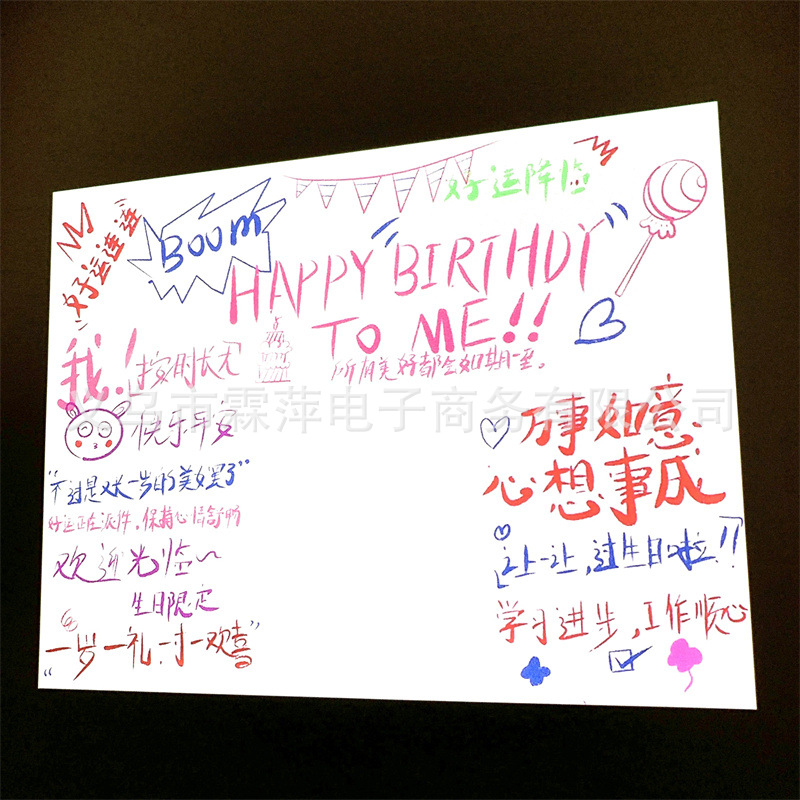 好运连连
BOOM
好运降临
HAPPY "BIRTHDY"
TO ME!!
所有美好都会如期而至。
我!按时长大
快乐平安
义乌市霖萍电子商务有限公司
"不过是又长一岁的美好罢了"
好运正在派件,保持心情舒畅
欢迎光临~
生日限定
"一岁一礼,一寸一欢喜"
万事如意
心想事成
让一让,过生日啦!!
学习进步,工作顺心